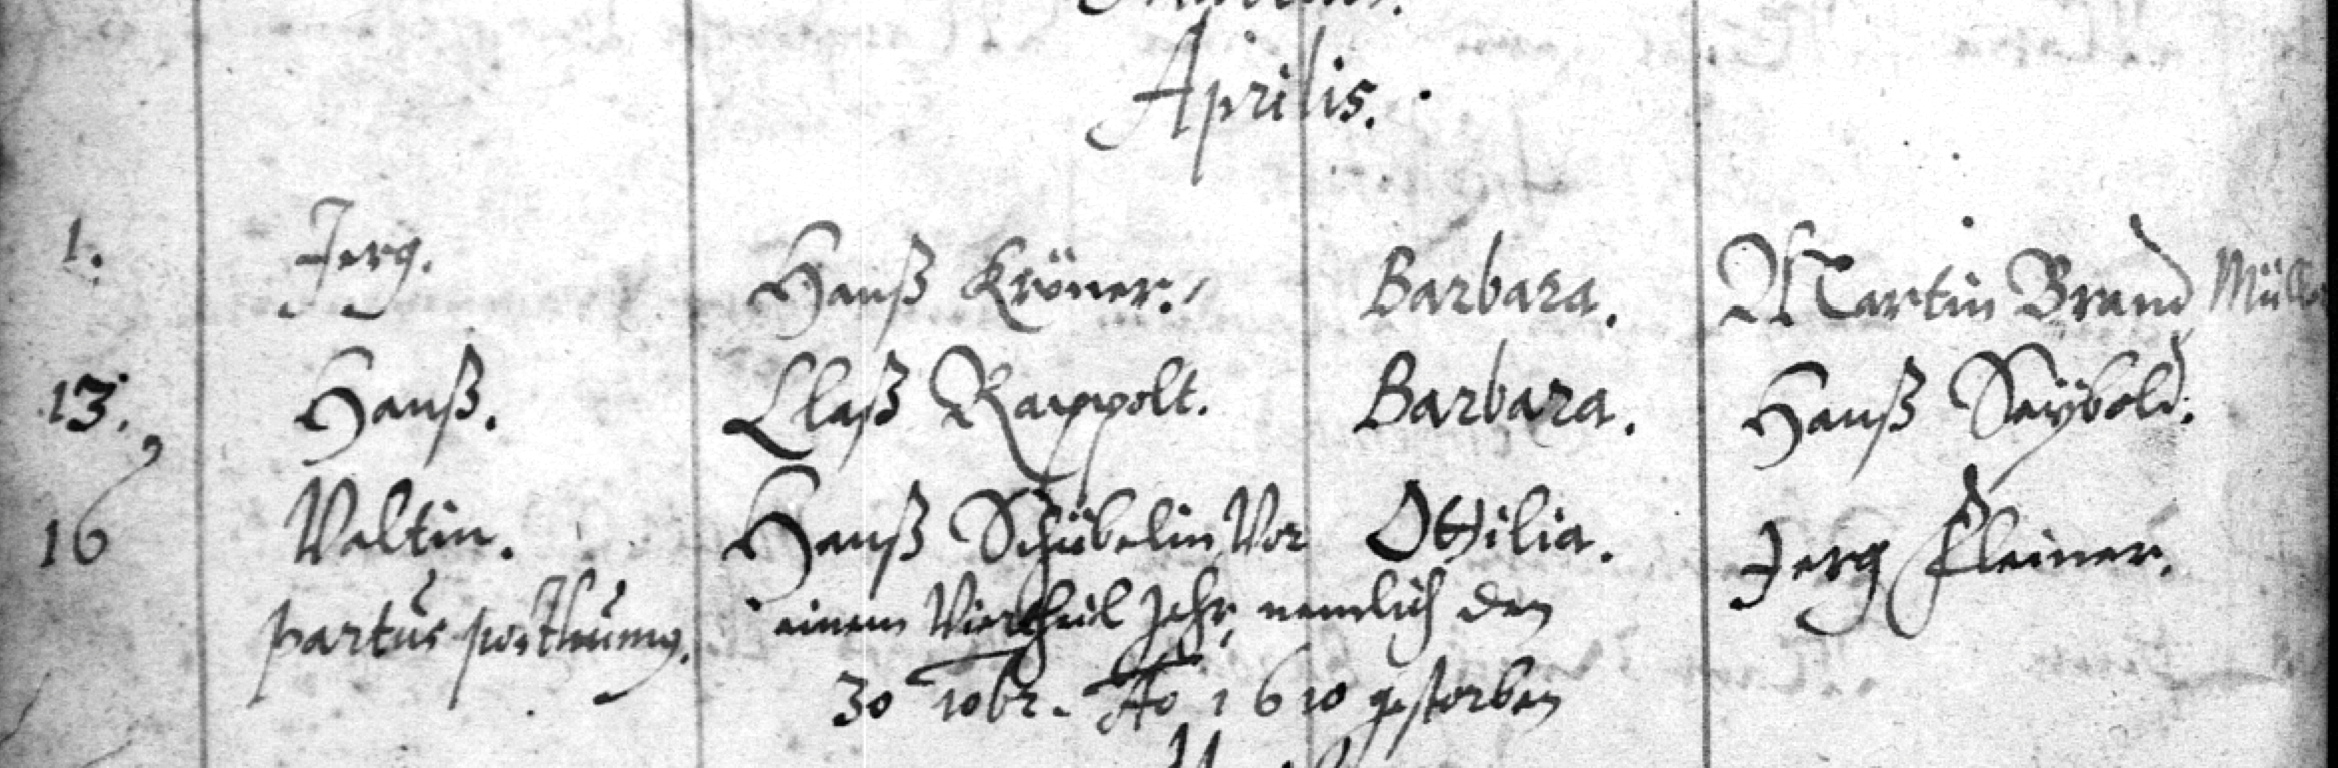 Aprilis.
1. Jerg. Hanß Kröner. Barbara. Martin Brand Müller
13. Hanß. Claß Rappolt. Barbara. Hanß Seÿbold.
16 Valtin. Hanß Schübelin, Vor Ottilia. Jerg Kleiner.
partus posthumus. einem Viertheil Jahr, nemlich den
30 10br. Ao 1610 gestorben